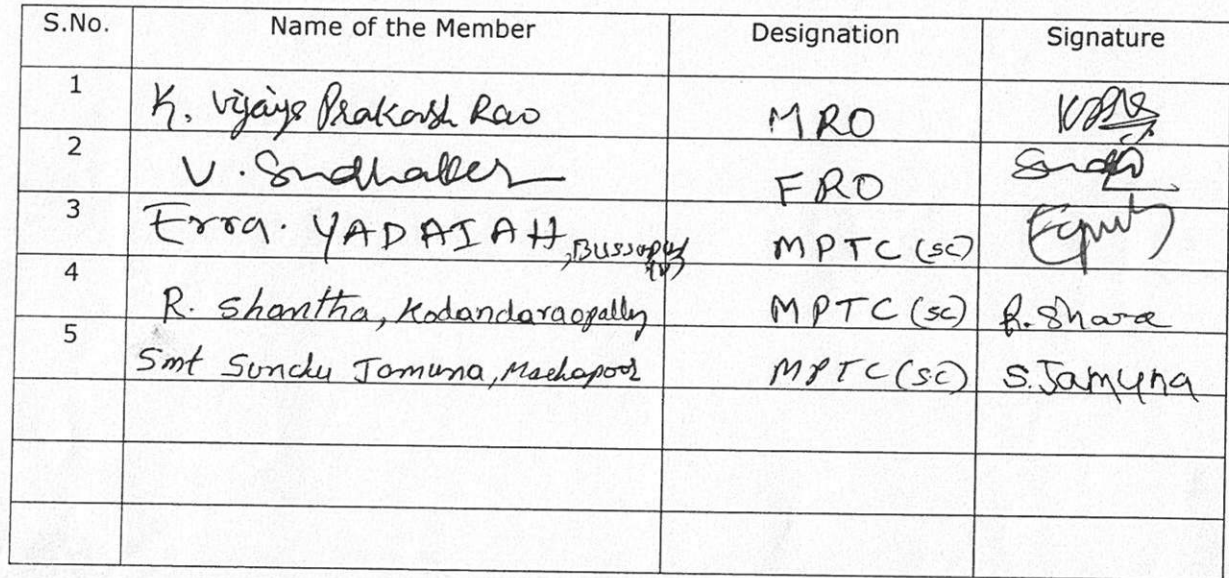 S.No. Name of the Member Designation Signature
1 K. Vijaya Prakash Rao MRO
2 V. Sudhaker FRO
3 Erra. YADAIAH, Bussapur (V) MPTC (SC)
4 R. Shantha, Kodandaraopally MPTC (SC) R. Shara
5 Smt Sundu Jamuna, Machapoor MPTC (SC) S. Jamuna